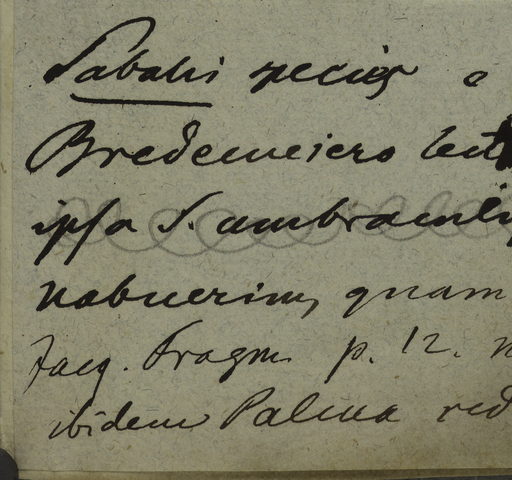 Sabalis species a
Bredemeiero lect
ipsa S. umbraculi
nabuerim, quam
Jacq. Fragm. p. 12.
ibidem Palma red